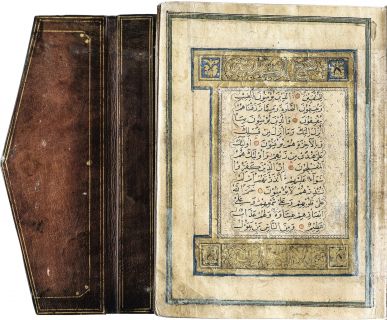 للمتقين الذين يؤمنون بالغيب
ويقيمون الصلوة ومما رزقناهم
ينفقون والذين يؤمنون بما
أنزل إليك وما أنزل من قبلك
وبالآخرة هم يوقنون أولئك
على هدى من ربهم وأولئك هم
المفلحون إن الذين كفروا
سواء عليهم ءأنذرتهم أم لم
تنذرهم لا يؤمنون ختم الله
على قلوبهم وعلى سمعهم وعلى
أبصارهم غشاوة ولهم عذاب
عظيم ومن الناس من يقول